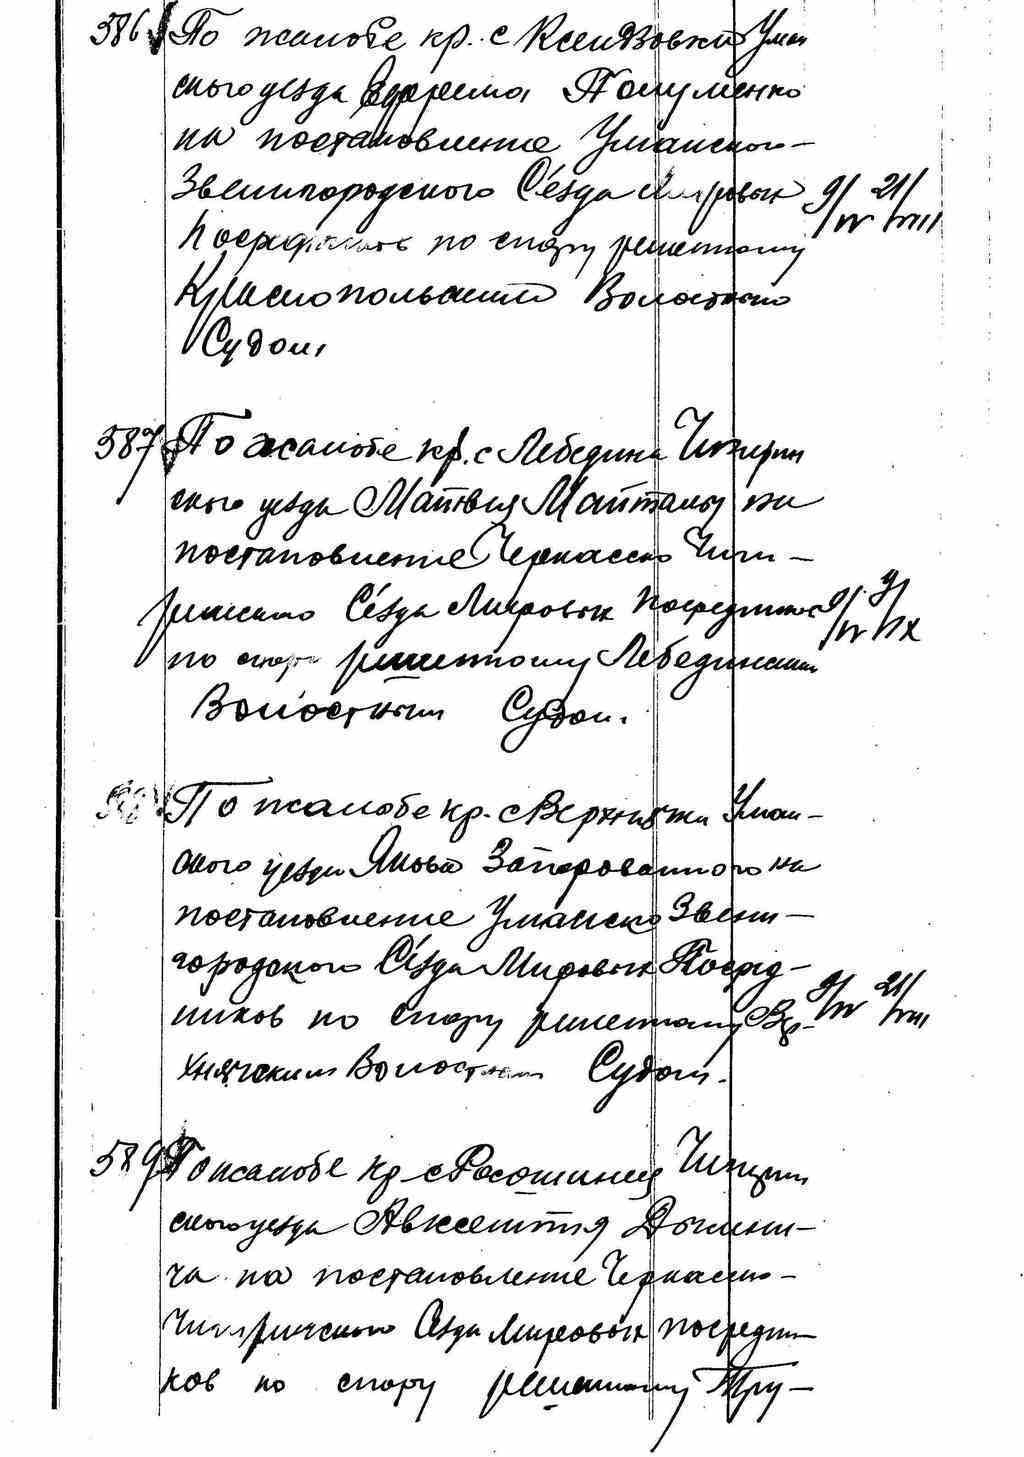 586 По жалобе кр. с Ксендзовки Уман
ского уезда Ефрема
на постановление Уманского-
Звенигородского Съезда Мировых 9/IV 21/VIII
Посредников по спору решенному
Краснопольским Волостным
Судом,
587 По жалобе кр. с Лебедина Чигирин
ского уезда Матвея на
постановление Черкасско Чиги-
ринского Съезда Мировых Посредников 9/IV 9/IX
по спору решенному Лебединским
Волостным Судом.
588 По жалобе кр. с Верхнячки Уман-
ского уезда Якова на
постановление Уманско Звени-
городского Съезда Мировых Посред-
ников по спору решенному Вер- 9/IV 21/VIII
хнячским Волостным Судом.
589 По жалобе кр с Россошинец Чигирин
ского уезда Авксентия
ча на постановление Черкасско-
Чигиринского Съезда Мировых посредни-
ков по спору решенному Тру-